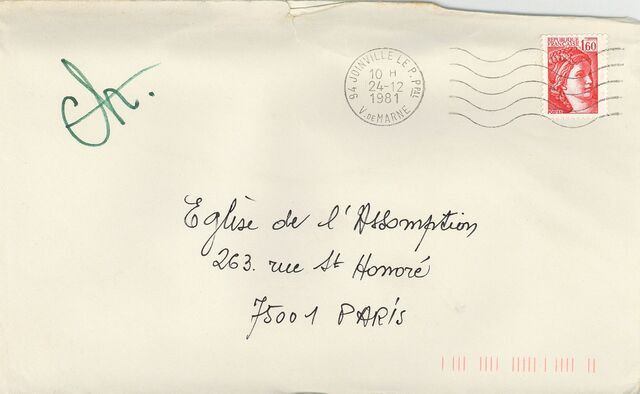 94 JOINVILLE LE P. PPAL
10 H
24-12
1981
V. DE MARNE
REPUBLIQUE
FRANCAISE
1,60
Eglise de l'Assomption
263. rue St Honoré
75001 PARIS